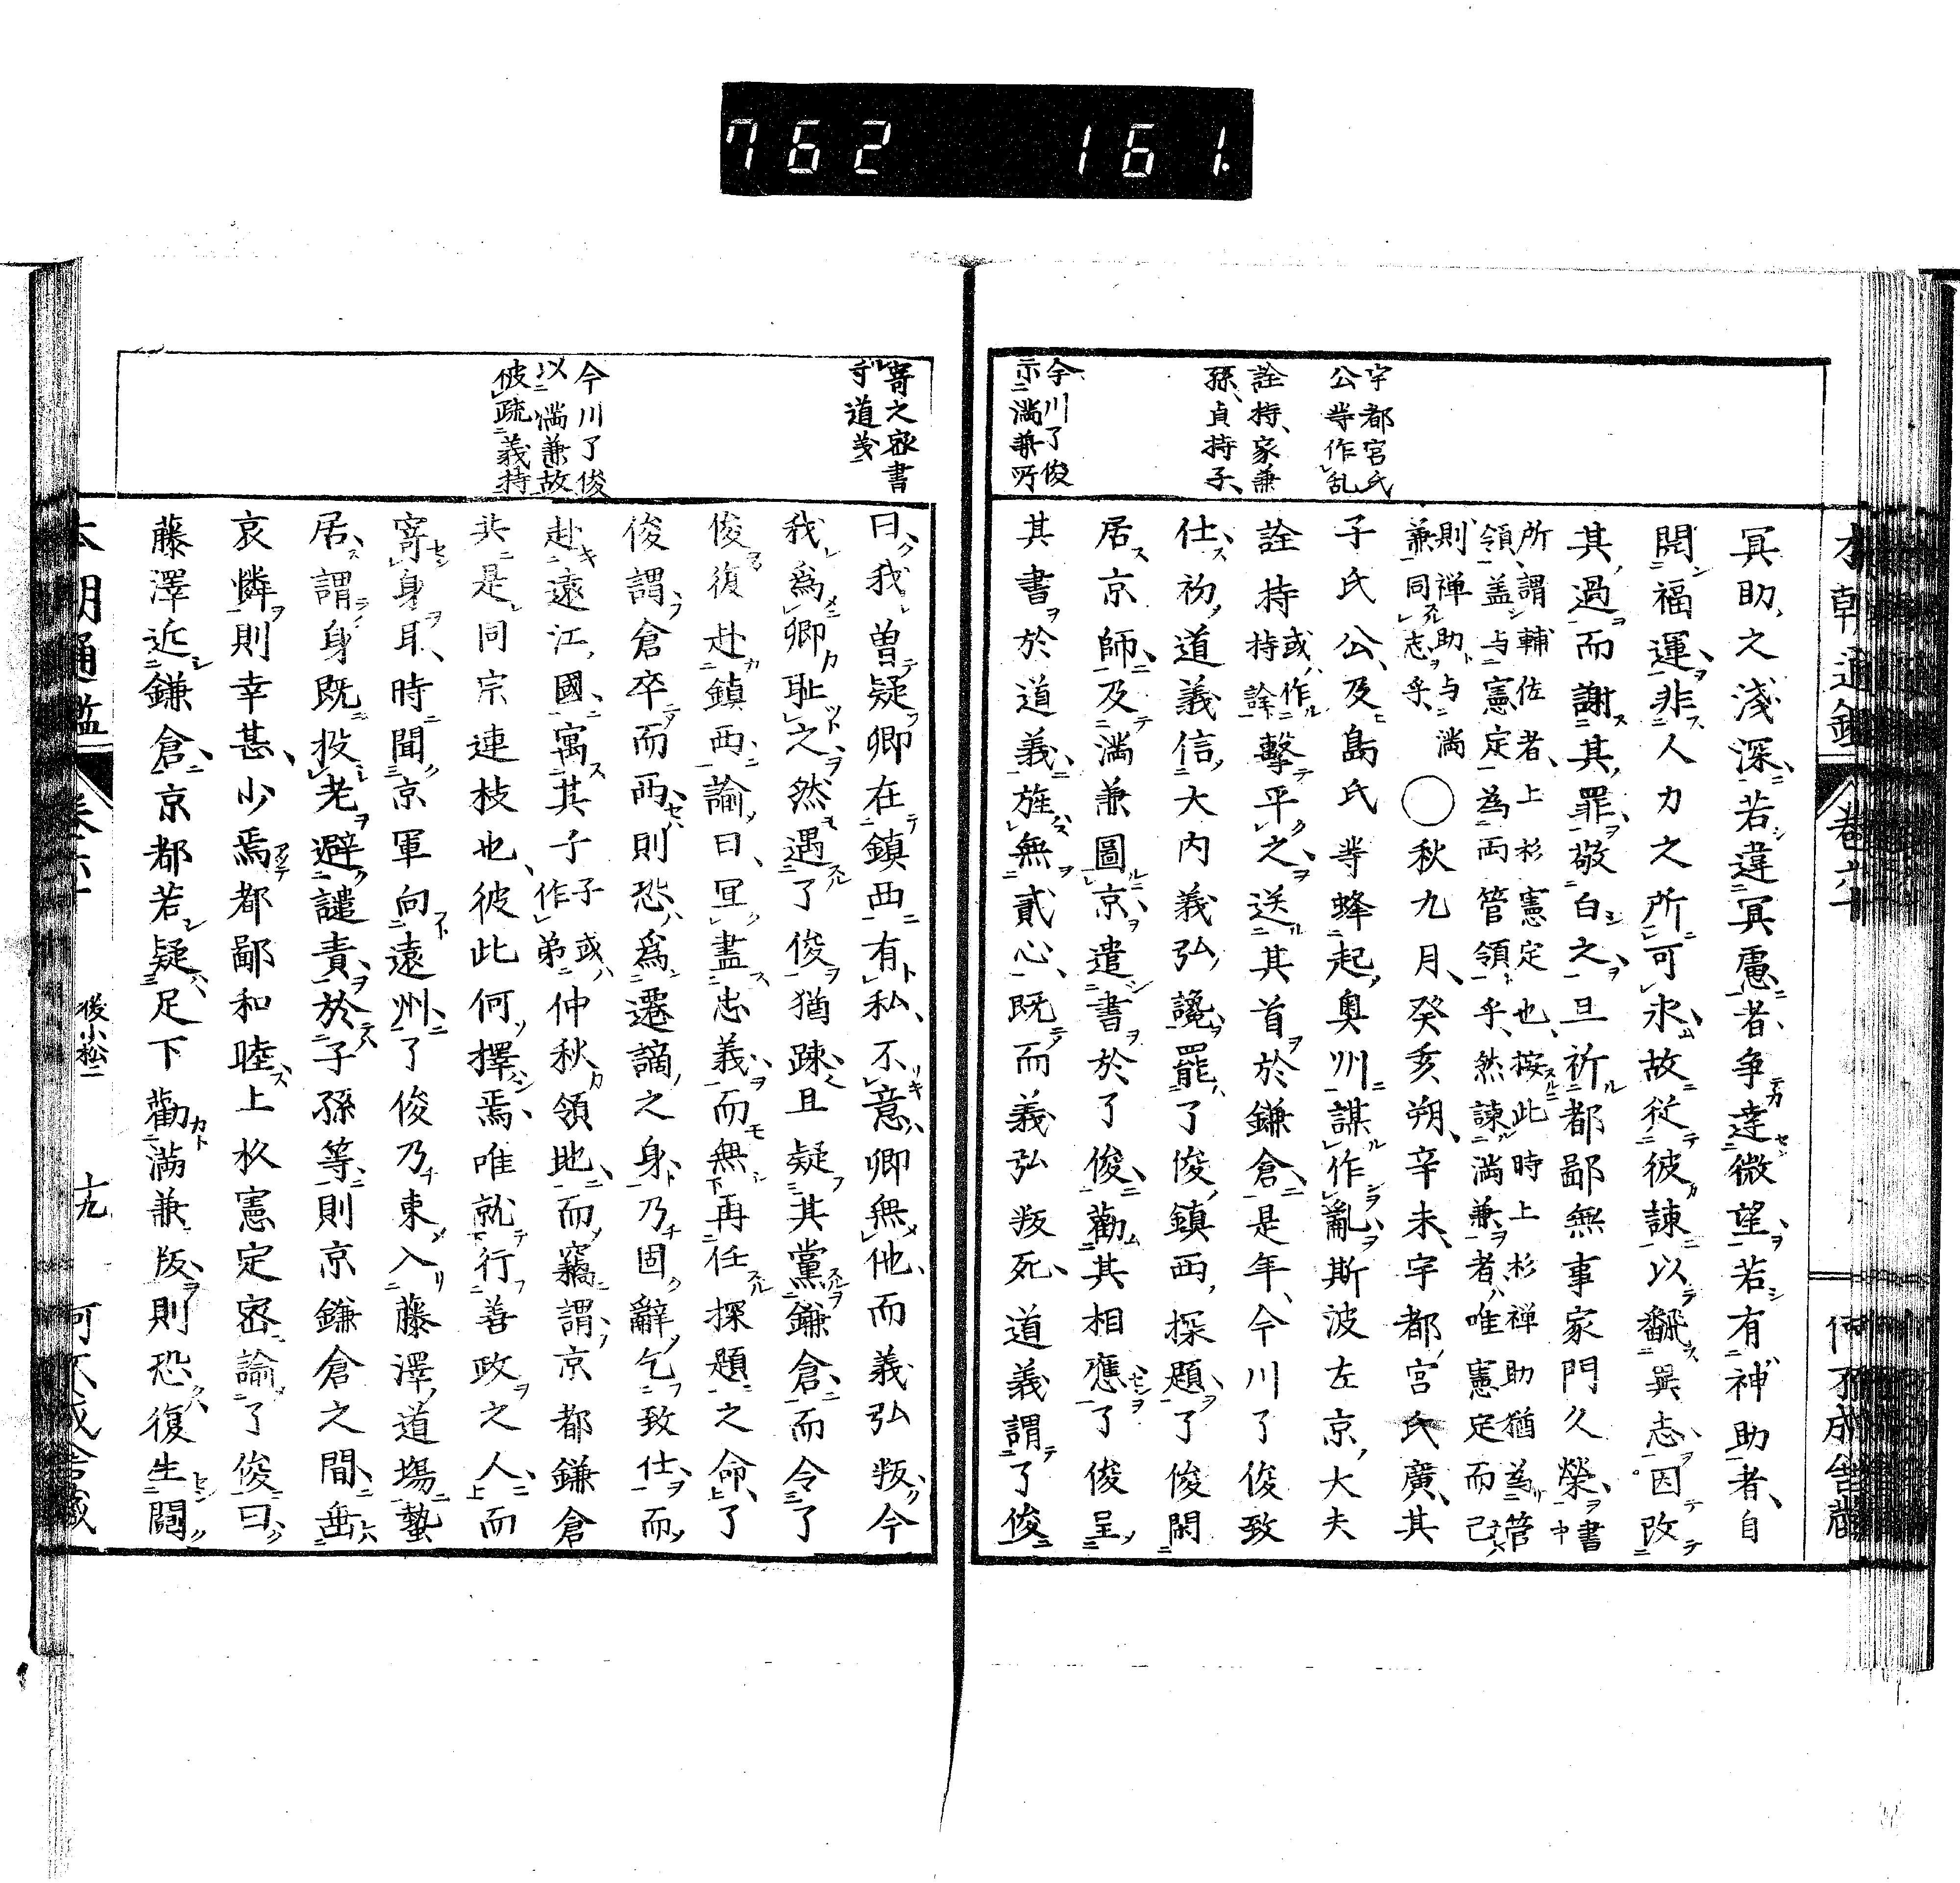 762 161.
本朝通鑑 卷六十
何不成舎蔵
宇都宮氏
公等作乱
詮持、家兼
孫、貞持子、
今川了俊
示満兼所
冥助之淺深若違冥慮者、争達微望若有神助者、自
開福運非人力之所可求故從彼諫以飜異志因改
其過而謝其罪敬白之旦祈都鄙無事家門久榮書中
所謂輔佐者、上杉憲定也、按此時上杉禅助猶為管
領、盖与憲定為両管領乎、然諫満兼者唯憲定而已
則禅助与満
兼同志乎、
○秋九月、癸亥朔、辛未、宇都宮氏廣、其
子氏公、及島氏等蜂起奥州謀作亂斯波左京大夫
詮持
或作
持詮
擊平之送其首於鎌倉是年、今川了俊致
仕初道義信大内義弘讒罷了俊鎮西探題了俊閑
居京師及満兼圖京遣書於了俊勸其相應了俊呈
其書於道義旌無貳心、既而義弘叛死、道義謂了俊
寄之密書
于道義
今川了俊
以満兼故
彼疏義持
曰我曽疑卿在鎮西有私、不意卿無他、而義弘叛今
我為卿耻之然遇了俊猶疎且疑其黨鎌倉而令了
俊復赴鎮西諭曰、冝盡忠義而無再任探題之命了
俊謂倉卒而西則恐為遷謫之身乃固辭乞致仕而
赴遠江國寓其子
子或
作弟
仲秋領地而竊謂京都鎌倉
共是同宗連枝也、彼此何擇焉、唯就行善政之人而
寄身耳、時聞京軍向遠州了俊乃東入藤澤道場蟄
居謂身既投老避譴責於子孫等則京鎌倉之間垂
哀憐則幸甚、少焉都鄙和睦上杦憲定密諭了俊曰
藤澤近鎌倉京都若疑足下勸満兼叛則恐復生鬪
本朝通鑑 卷六十 後小松二 十九 何不成舎蔵